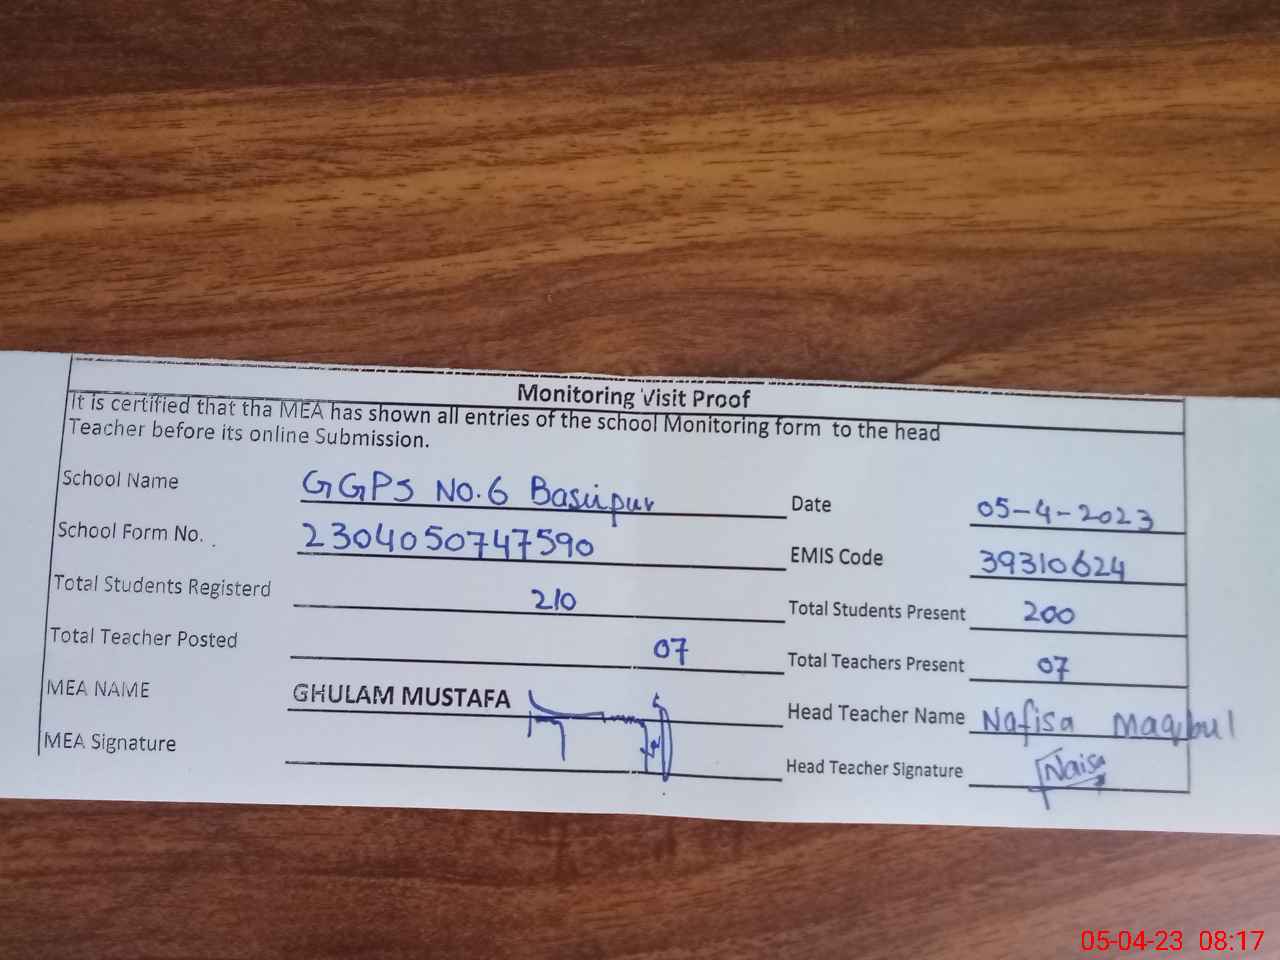 Monitoring Visit Proof
It is certified that tha MEA has shown all entries of the school Monitoring form to the head
Teacher before its online Submission.
School Name GGPS No.6 Basirpur Date 05-4-2023
School Form No. 2304050747590 EMIS Code 39310624
Total Students Registerd 210 Total Students Present 200
Total Teacher Posted 07 Total Teachers Present 07
MEA NAME GHULAM MUSTAFA Head Teacher Name Nafisa Maqbul
MEA Signature Head Teacher Signature
05-04-23 08:17